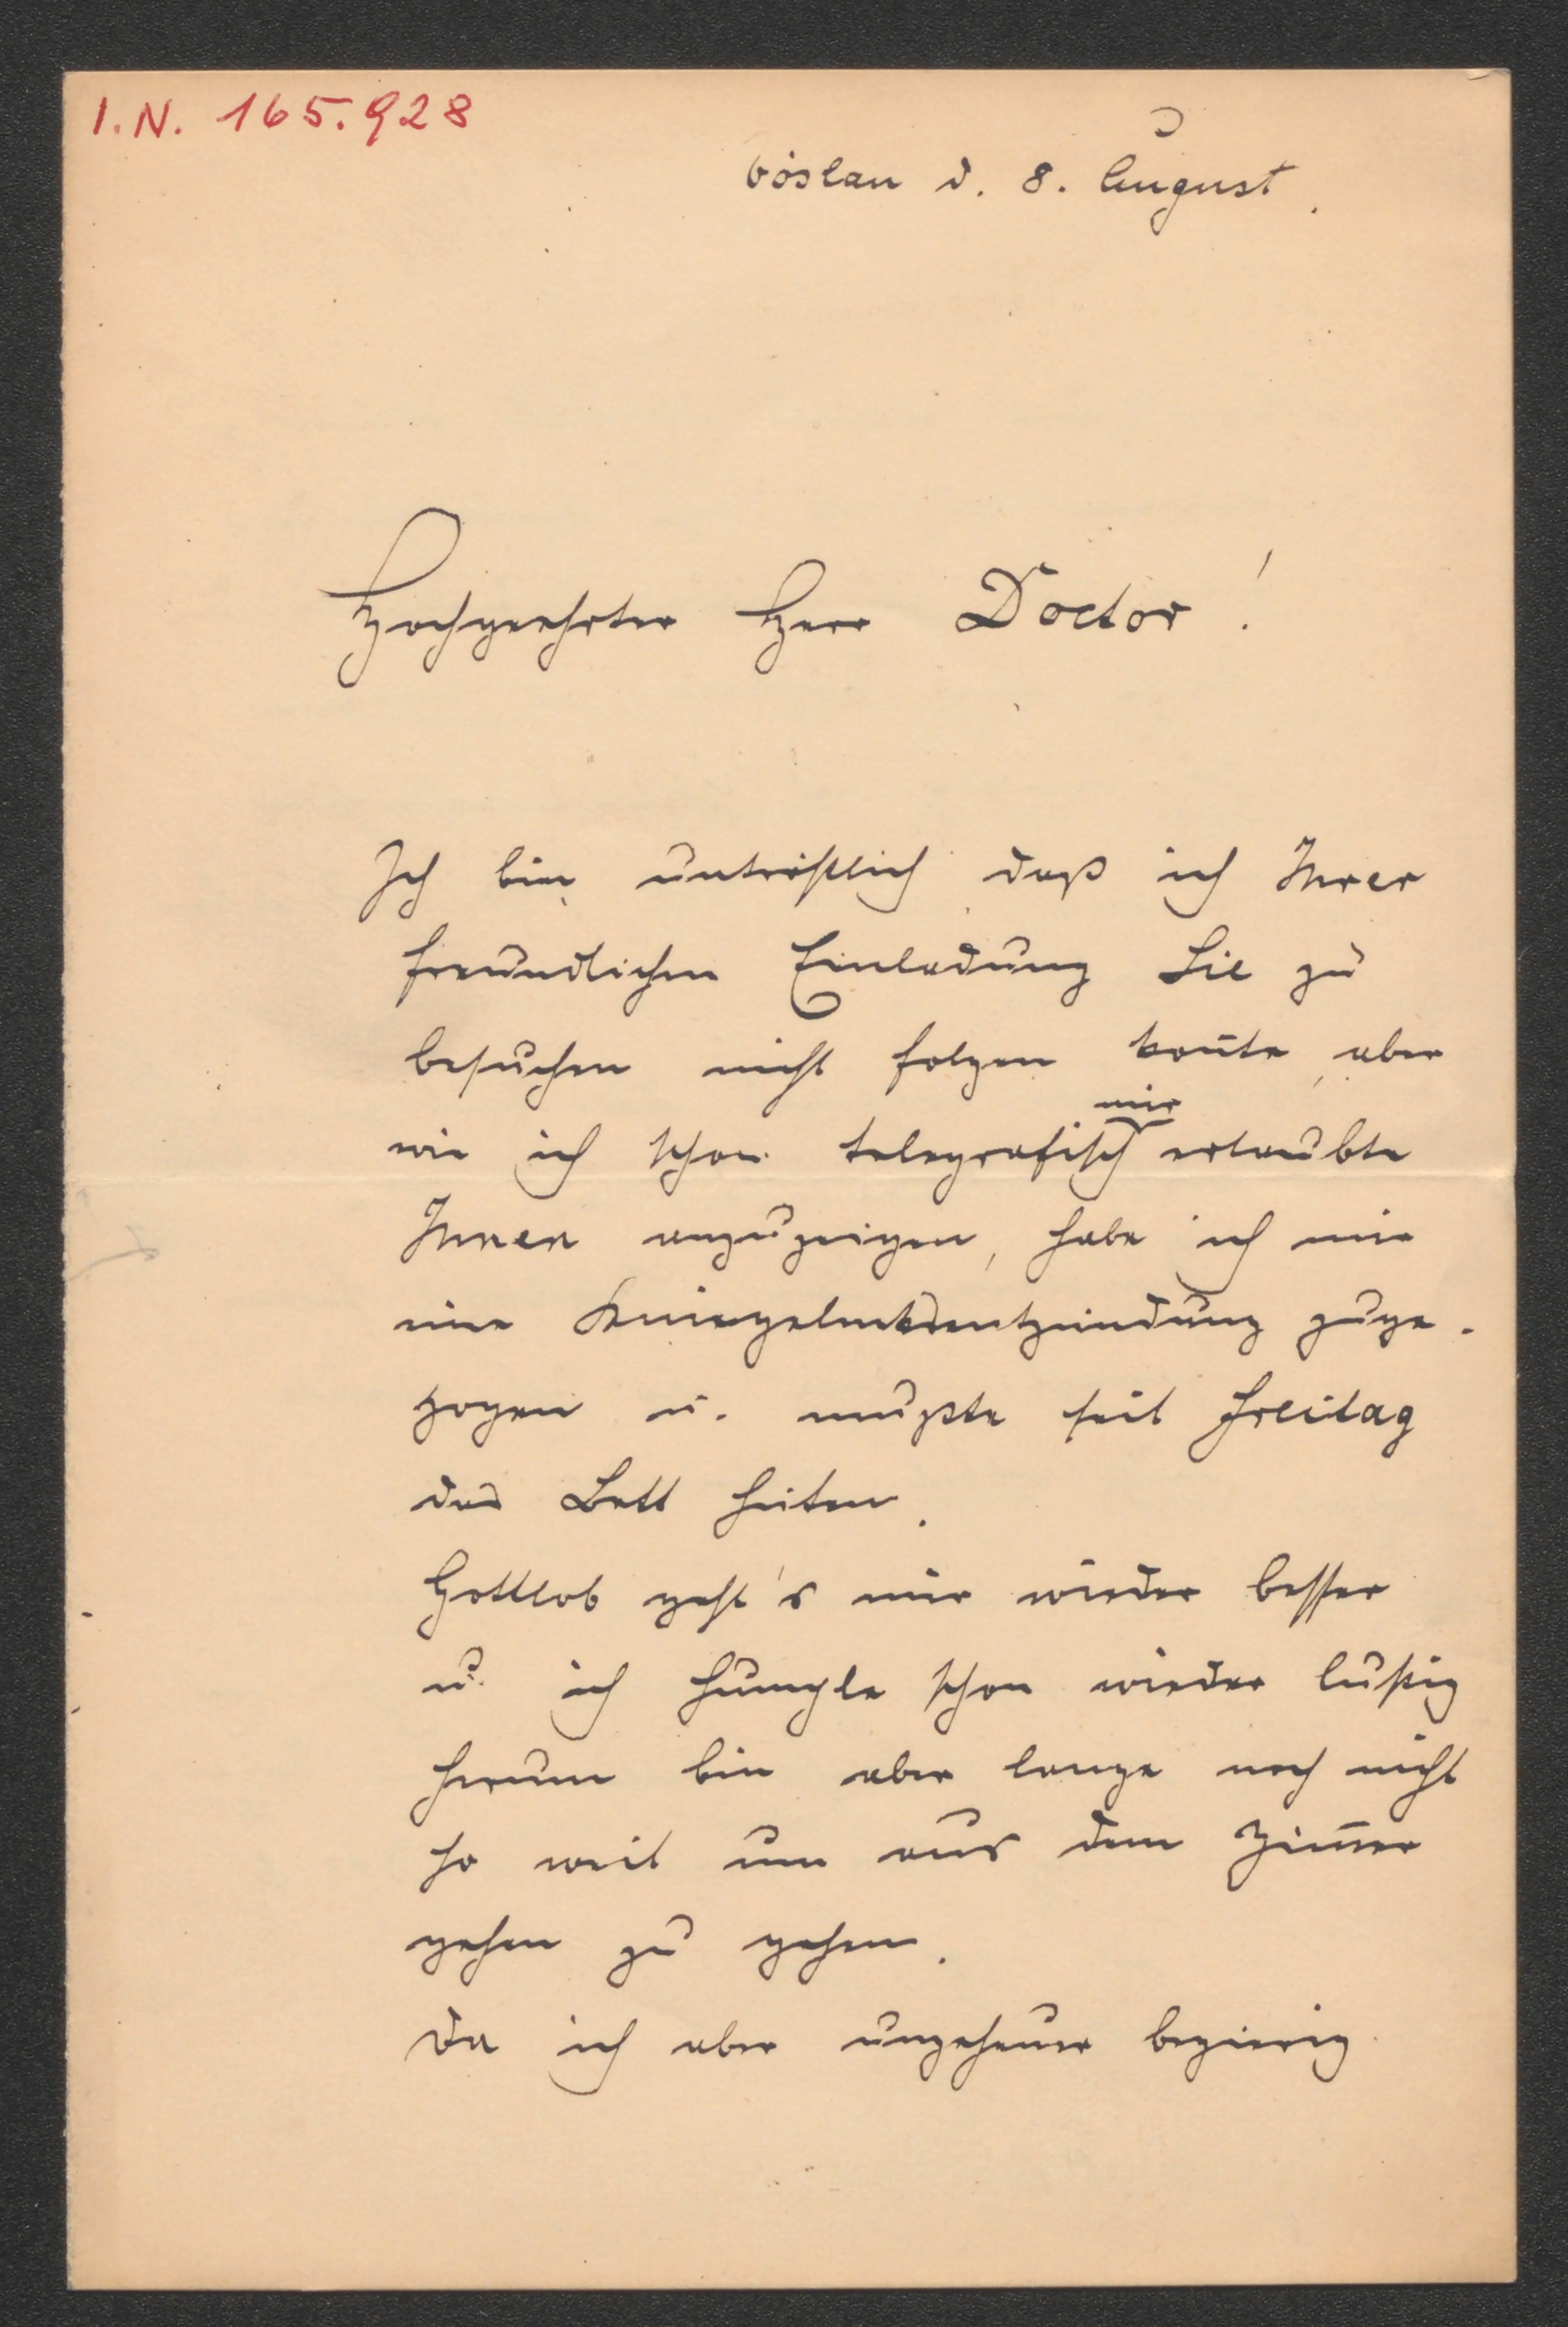 I.N. 165.928
Vöslau d. 8. August.
Hochgeehrter Herr Doctor!
Ich bin untröstlich daß ich Ihrer
freundlichen Einladung Sie zu
besuchen nicht folgen kon̄te, aber
mir
wie ich schon telegrafisch erlaubte
Ihnen anzuzeigen, habe ich mir
eine Kniegelenksentzündung zuge-
zogen u. mußte seit Freitag
das Bett hüten.
Gottlob geht's mir wieder besser
u. ich humple schon wieder lustig
herum bin aber lange noch nicht
so weit um aus dem Zim̄er
gehen zu gehen.
Da ich aber ungeheuer begierig